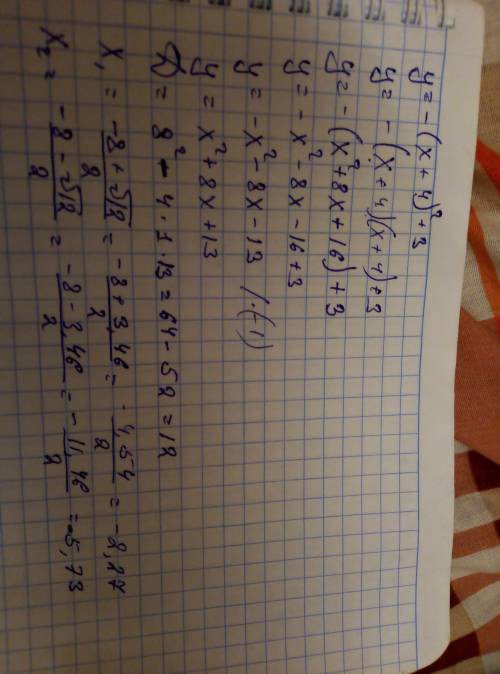 y = -(x+4)²+3
y = -(x+4)(x+4)+3
y = -(x²+8x+16)+3
y = -x²-8x-16+3
y = -x²-8x-13 /·(-1)
y = x²+8x+13
D = 8²-4·1·13 = 64-52 = 12
x₁ = (-8+√12)/2 = (-8+3,46)/2 = (-4,54)/2 = -2,27
x₂ = (-8-√12)/2 = (-8-3,46)/2 = -11,46/2 = -5,73